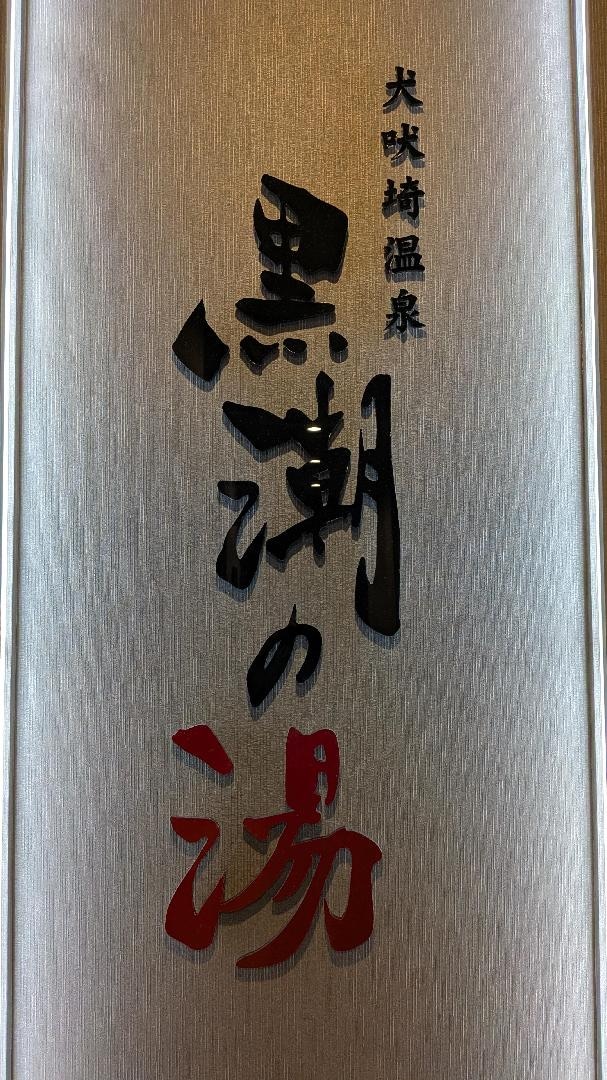 犬吠埼温泉
黒潮の湯